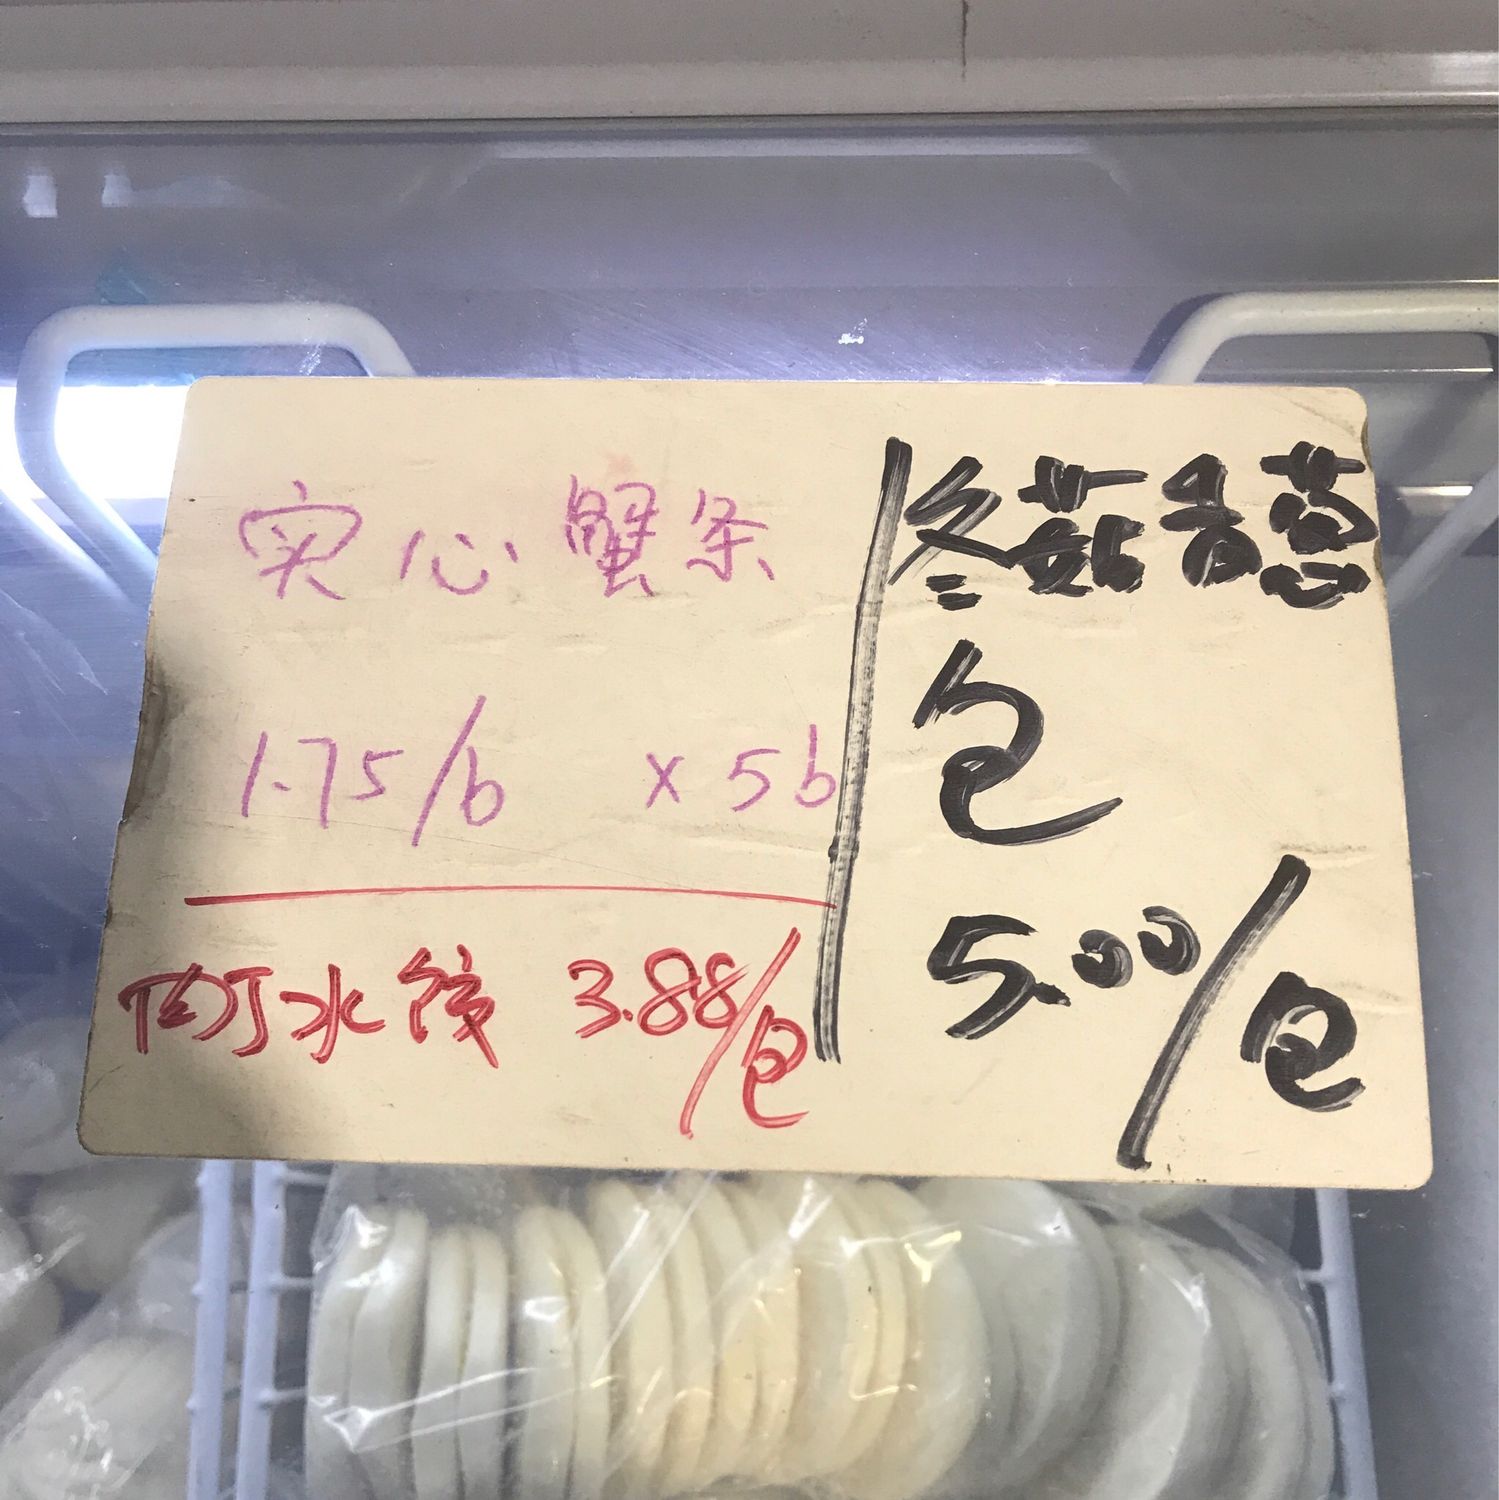 实心蟹条
1.75/b x5b
肉丁水饺 3.88/包
冬菇香葱
包
5.00/包